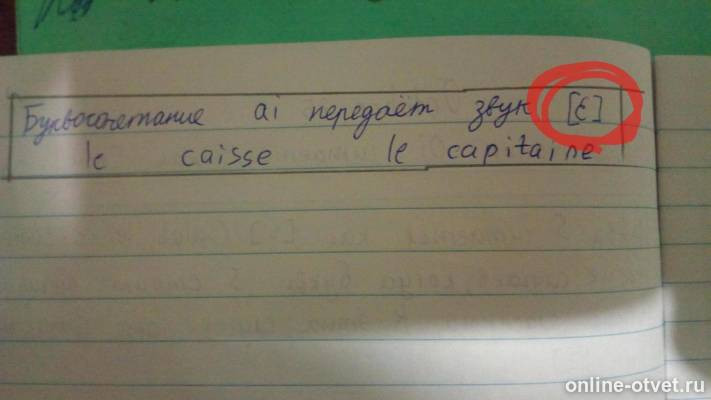 Буквосочетание ai передаёт звук [ε]
le caisse le capitaine
online-otvet.ru